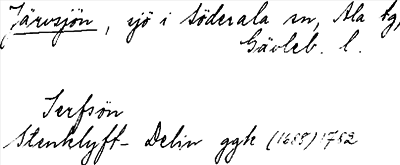 Järvsjön, sjö i Söderala sn, Ala tg,
Gävleb. l.
Jerfsön
Stenklyft- Delin ggk (1688) 1752